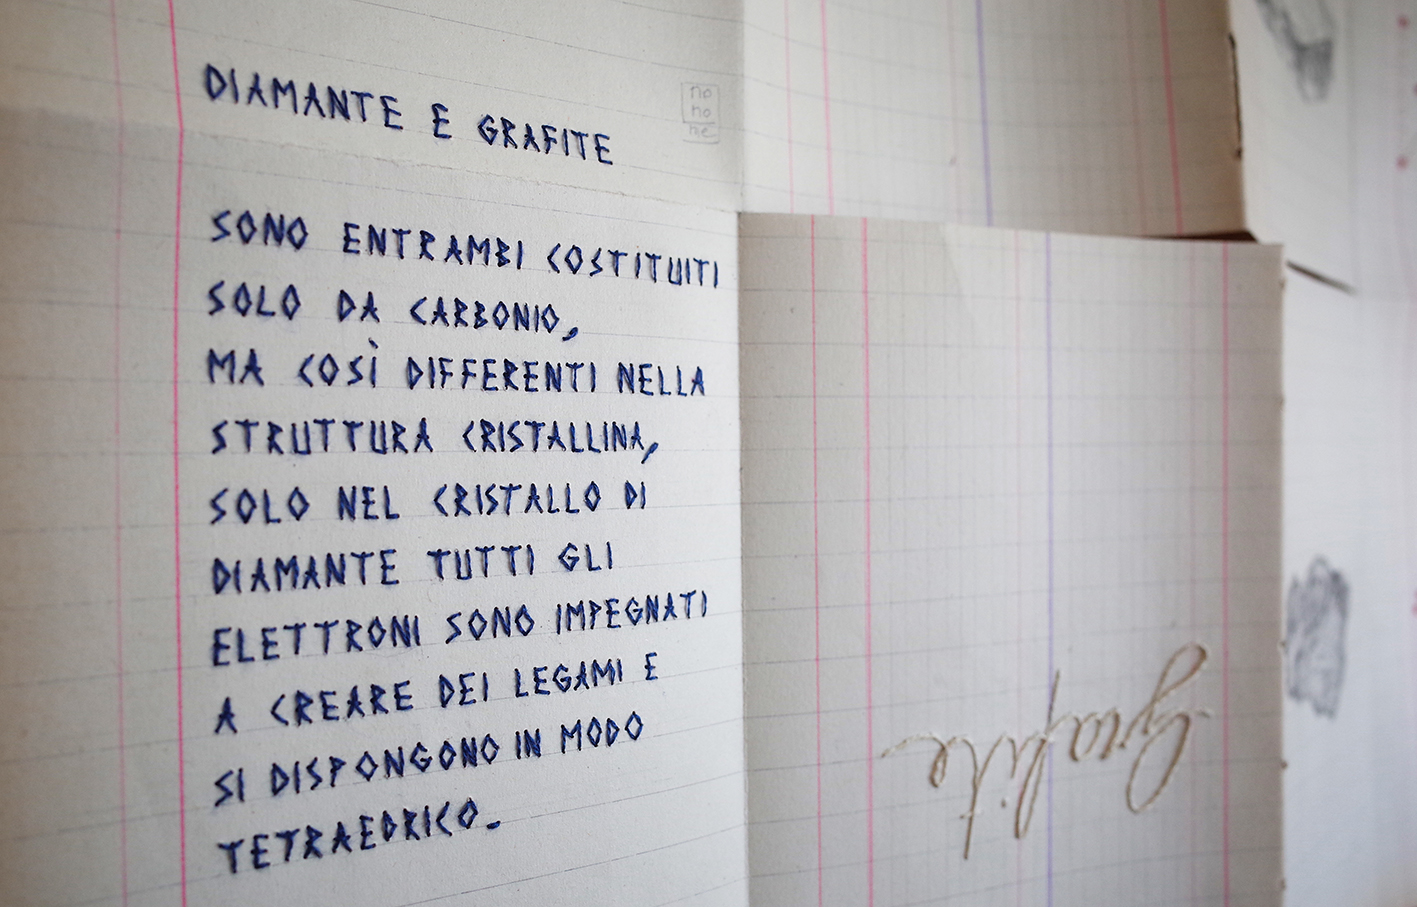 DIAMANTE E GRAFITE
no
no
ne
SONO ENTRAMBI COSTITUITI
SOLO DA CARBONIO,
MA COSÌ DIFFERENTI NELLA
STRUTTURA CRISTALLINA,
SOLO NEL CRISTALLO DI
DIAMANTE TUTTI GLI
ELETTRONI SONO IMPEGNATI
A CREARE DEI LEGAMI E
SI DISPONGONO IN MODO
TETRAEDRICO.
Grafite